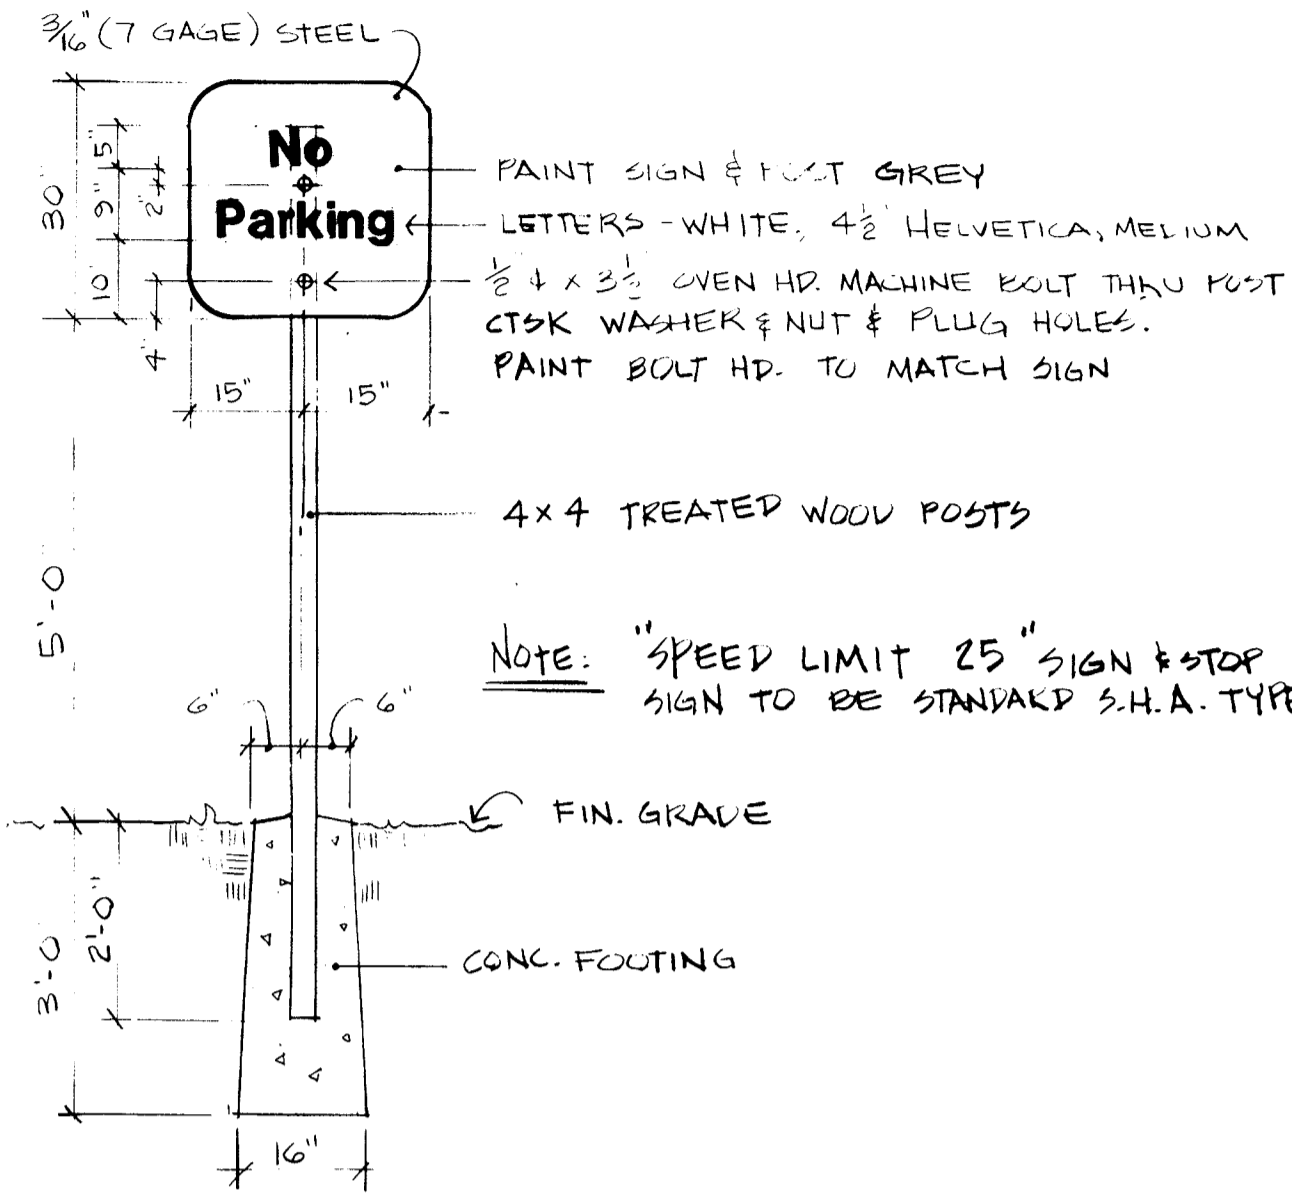 3/16" (7 GAGE) STEEL
No
Parking
30"
5"
9"
2"
10"
4"
15"
15"
PAINT SIGN & POST GREY
LETTERS - WHITE, 4 1/2" HELVETICA, MEDIUM
1/2 φ x 3 1/2 OVEN HD. MACHINE BOLT THRU POST
CTSK WASHER & NUT & PLUG HOLES.
PAINT BOLT HD. TO MATCH SIGN
4x4 TREATED WOOD POSTS
5'-0
NOTE: "SPEED LIMIT 25" SIGN & STOP
SIGN TO BE STANDARD S.H.A. TYPE
6"
6"
FIN. GRADE
3'-0
2'-0"
CONC. FOOTING
16"